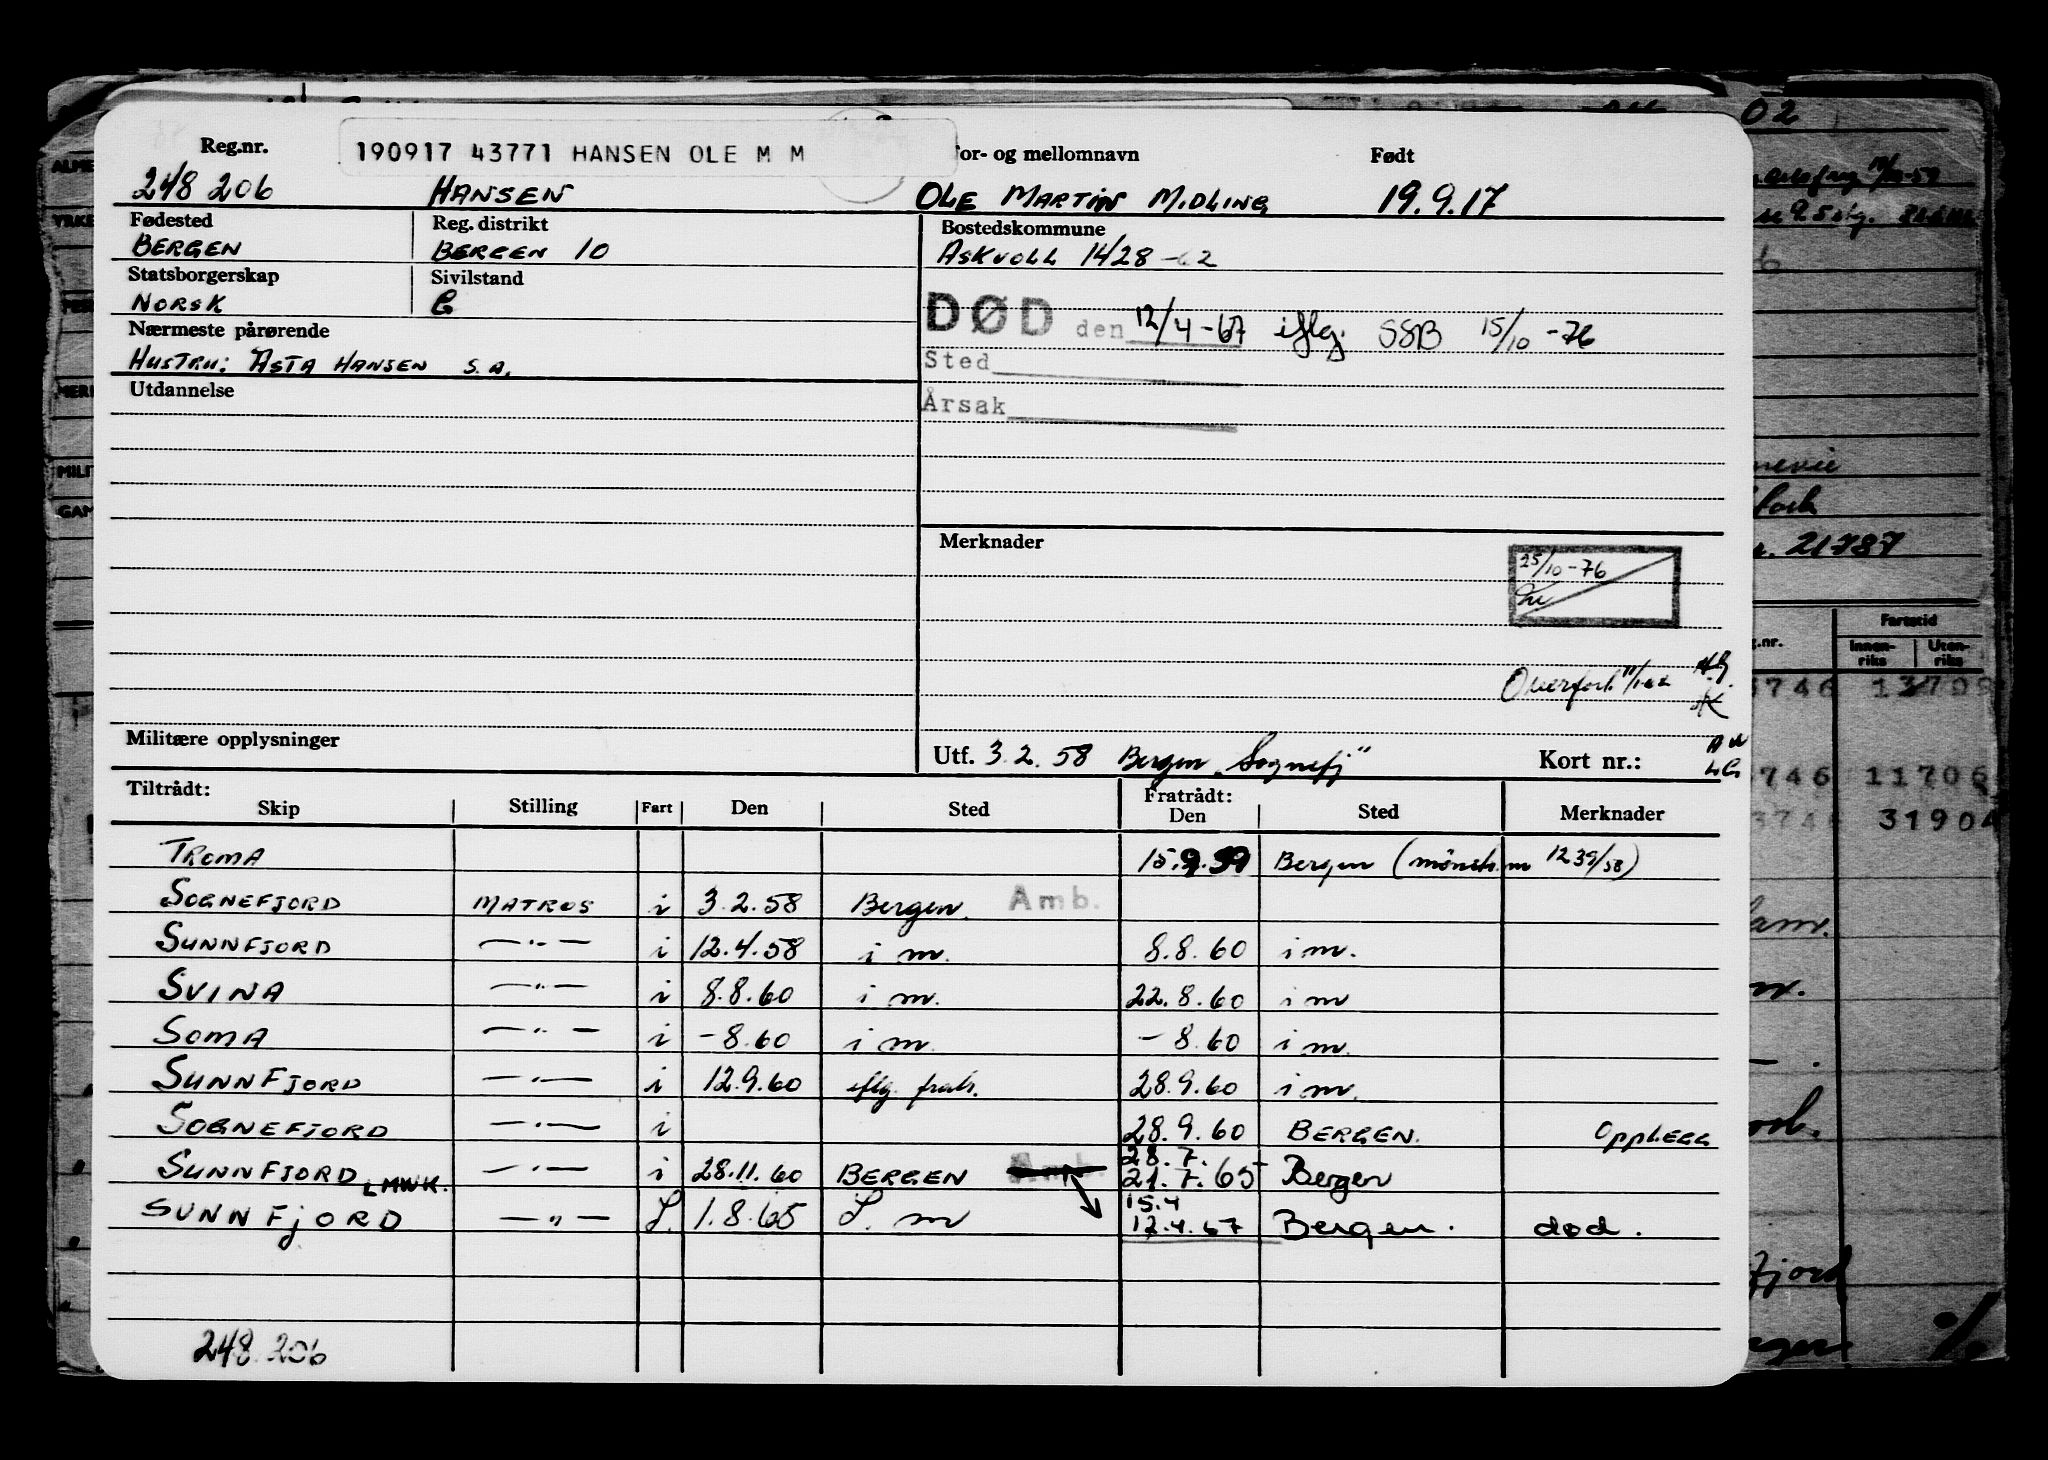 190917 43771 HANSEN OLE M M
Reg.nr. For- og mellomnavn Født
248 206 HANSEN OLE MARTIN MIDLING 19.9.17
Fødested Reg. distrikt Bostedskommune
BERGEN BERGEN 10 ASKVOLL 1428
Statsborgerskap Sivilstand
NORSK G
Nærmeste pårørende
HUSTRU: ASTA HANSEN S.A.
DØD den 12/4-67 iflg. SSB 15/10-76
Sted
Årsak
Utdannelse
Merknader
25/10-76
Overført
Militære opplysninger
Utf. 3.2.58 Bergen "Sognefj" Kort nr.:
Tiltrådt: Fratrådt:
Skip Stilling Fart Den Sted Den Sted Merknader
TROMA 15.9.59 Bergen (mønstr. m 1239/58)
SOGNEFJORD MATROS i 3.2.58 Bergen. Amb.
SUNNFJORD —"— i 12.4.58 i m. 8.8.60 i m.
SVINA —"— i 8.8.60 i m. 22.8.60 i m
SOMA —"— i -8.60 i m. -8.60 i m.
SUNNFJORD —"— i 12.9.60 iflg. fratr. 28.9.60 i m.
SOGNEFJORD —"— i 28.9.60 BERGEN. OPPLEGG
28.7.
SUNNFJORD LMWK. —"— i 28.11.60 BERGEN Amb. 21.7.65 Bergen
15.4
SUNNFJORD —"— I. 1.8.65 I. m 12.4.67 Bergen. død.
248.206
02
21787
Fartstid
Innen-riks Uten-riks
g.nr.
3746 13709
3746 11706
3746 31904
ALME
YRKE
MERK
MILIT
GAM
fjord